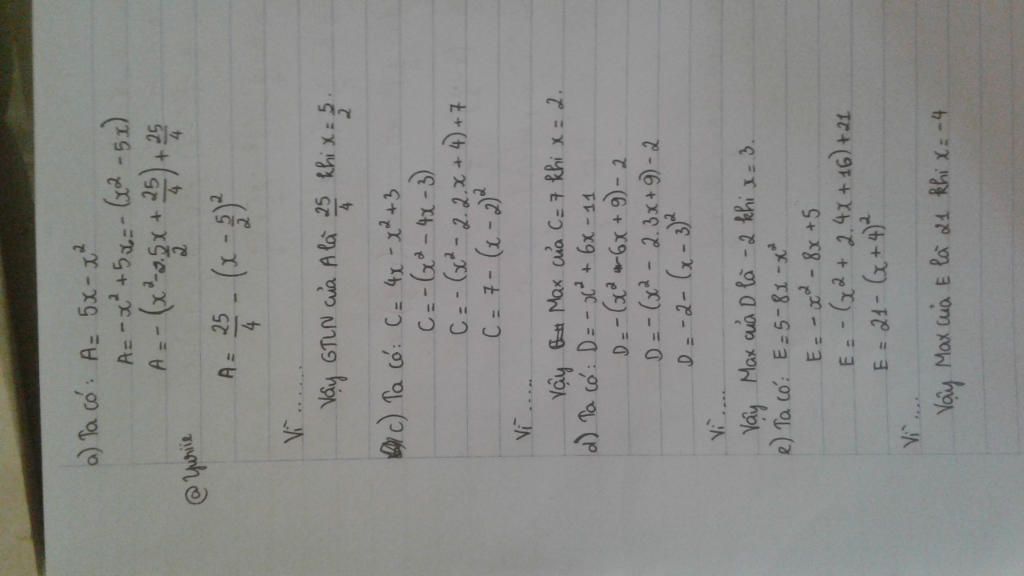 a) Ta có: A = 5x - x²
A = -x² + 5x = -(x² - 5x)
A = -(x² - 2.5/2x + 25/4) + 25/4
@Yuriie
A = 25/4 - (x - 5/2)²
Vì .......
Vậy GTLN của A là 25/4 khi x = 5/2.
c) Ta có: C = 4x - x² + 3
C = -(x² - 4x - 3)
C = -(x² - 2.2.x + 4) + 7
C = 7 - (x - 2)²
Vì .......
Vậy Max của C = 7 khi x = 2.
d) Ta có: D = -x² + 6x - 11
D = -(x² - 6x + 9) - 2
D = -(x² - 2.3x + 9) - 2
D = -2 - (x - 3)²
Vì .....
Vậy Max của D là -2 khi x = 3.
e) Ta có: E = 5 - 8x - x²
E = -x² - 8x + 5
E = -(x² + 2.4x + 16) + 21
E = 21 - (x + 4)²
Vì ....
Vậy Max của E là 21 khi x = -4